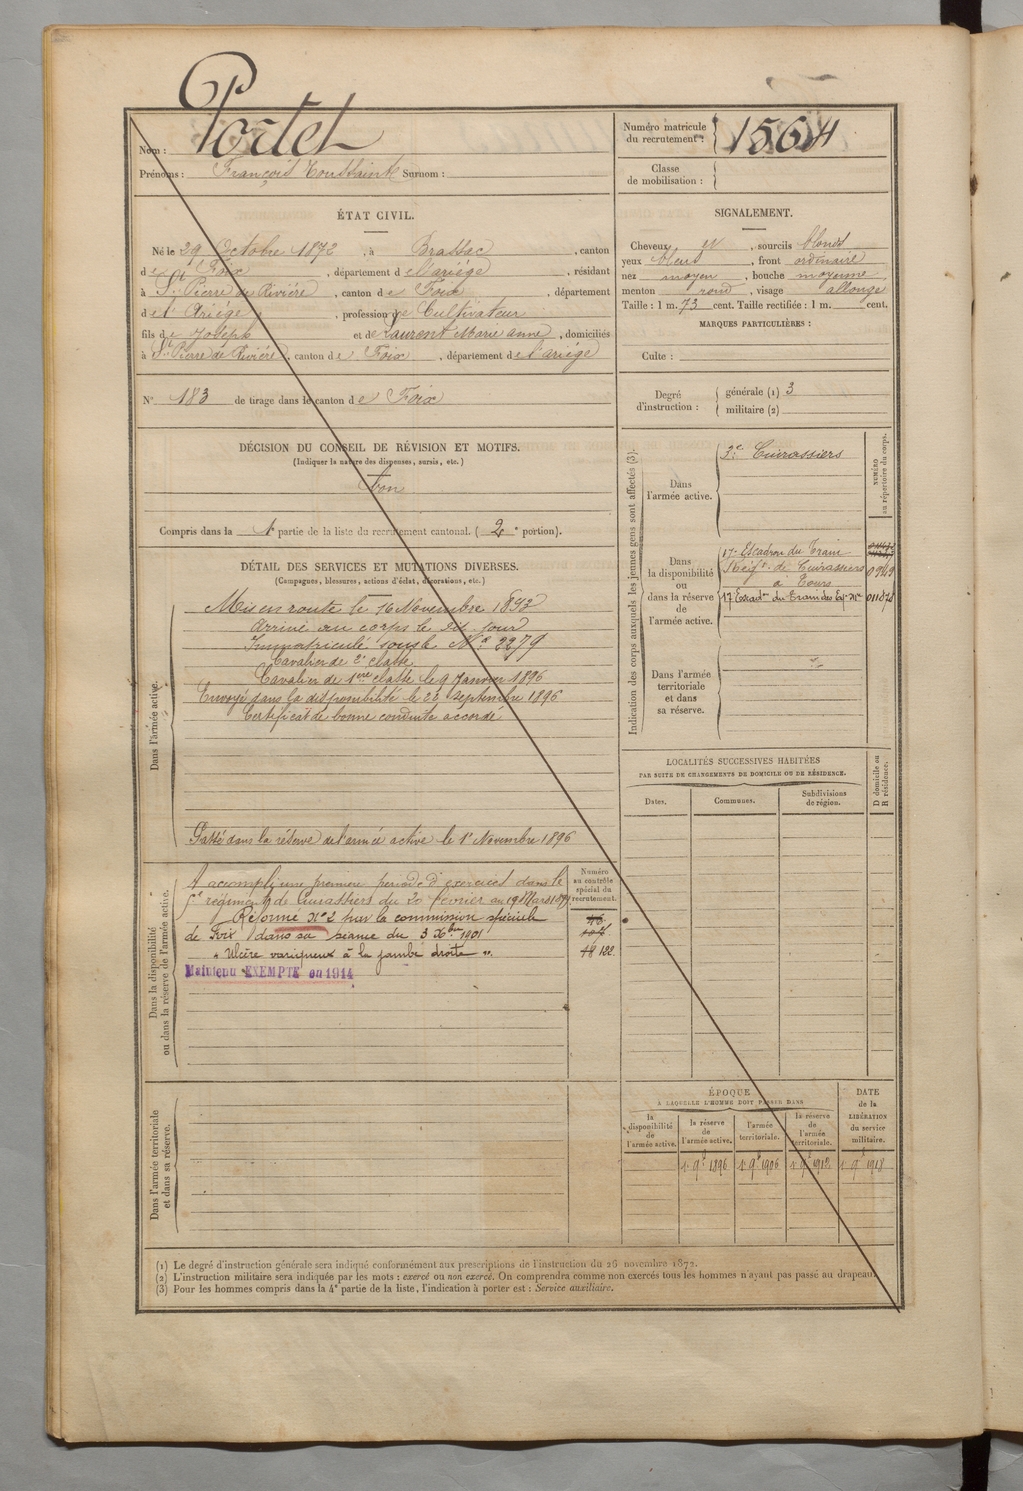 Nom : Portet
Prénoms : François Toussaint Surnom :
Numéro matricule du recrutement : 1564
Classe de mobilisation :
ÉTAT CIVIL.
Né le 29 Octobre 1872, à Brassac, canton
de Foix, département de l'ariége, résidant
à St Pierre de Rivière, canton de Foix, département
de l'Ariége, profession de Cultivateur
fils de Joseph et de Laurent Marie anne, domiciliés
à St Pierre de Rivière, canton de Foix, département de l'ariége
N° 183 de tirage dans le canton de Foix
DÉCISION DU CONSEIL DE RÉVISION ET MOTIFS.
(Indiquer la nature des dispenses, sursis, etc.)
bon
Compris dans la 1e partie de la liste du recrutement cantonal. (2e portion).
SIGNALEMENT.
Cheveux et, sourcils blonds
yeux bleus, front ordinaire
nez moyen, bouche moyenne
menton rond, visage allongé
Taille : 1 m. 73 cent. Taille rectifiée : 1 m. cent.
MARQUES PARTICULIÈRES :
Culte :
Degré d'instruction : générale (1) 3
militaire (2)
DÉTAIL DES SERVICES ET MUTATIONS DIVERSES.
(Campagnes, blessures, actions d'éclat, décorations, etc.)
Dans l'armée active.
Mis en route le 16 Novembre 1893
Arrivé au corps le dit jour
Immatriculé sous le N° 2279
Cavalier de 2e classe
Cavalier de 1ere classe le 9 Janvier 1896
Envoyé dans la disponibilité le 22 septembre 1896
Certificat de bonne conduite accordé
Passé dans la réserve de l'armée active le 1r Novembre 1896
Dans la disponibilité
ou dans la réserve de l'armée active.
A accompli une première période d'exercices dans le
régiment de Cuirassiers du 20 février au 19 Mars
Réformé N° 2 par la commission spéciale
de Foix dans sa séance du 3 Xbre 1901
« Ulcère variqueux à la jambe droite ».
Maintenu EXEMPTÉ en 1914
Numéro
au contrôle
spécial du
recrutement.
122
Dans l'armée territoriale
et dans sa réserve.
Indication des corps auxquels les jeunes gens sont affectés (3).
NUMÉRO
au répertoire du corps.
Dans
l'armée active.
3e Cuirassiers
Dans
la disponibilité
ou
dans la réserve
de
l'armée active.
17e Escadron du Train
Régt de Cuirassiers 0949
à Tours
17 Escadon du Train des Eq. Mre 011878
Dans l'armée
territoriale
et dans
sa réserve.
LOCALITÉS SUCCESSIVES HABITÉES
PAR SUITE DE CHANGEMENTS DE DOMICILE OU DE RÉSIDENCE.
Dates.
Communes.
Subdivisions
de région.
D domicile ou
R résidence.
ÉPOQUE
A LAQUELLE L'HOMME DOIT PASSER DANS
la
disponibilité
de
l'armée active.
la réserve
de
l'armée active.
l'armée
territoriale.
la réserve
de
l'armée
territoriale.
DATE
de la
LIBÉRATION
du service
militaire.
1r 9b 1896
1r 9b 1906
1r 9b 1912
1r 9b 1918
(1) Le degré d'instruction générale sera indiqué conformément aux prescriptions de l'instruction du 26 novembre 1872.
(2) L'instruction militaire sera indiquée par les mots : exercé ou non exercé. On comprendra comme non exercés tous les hommes n'ayant pas passé au drapeau.
(3) Pour les hommes compris dans la 4e partie de la liste, l'indication à porter est : Service auxiliaire.